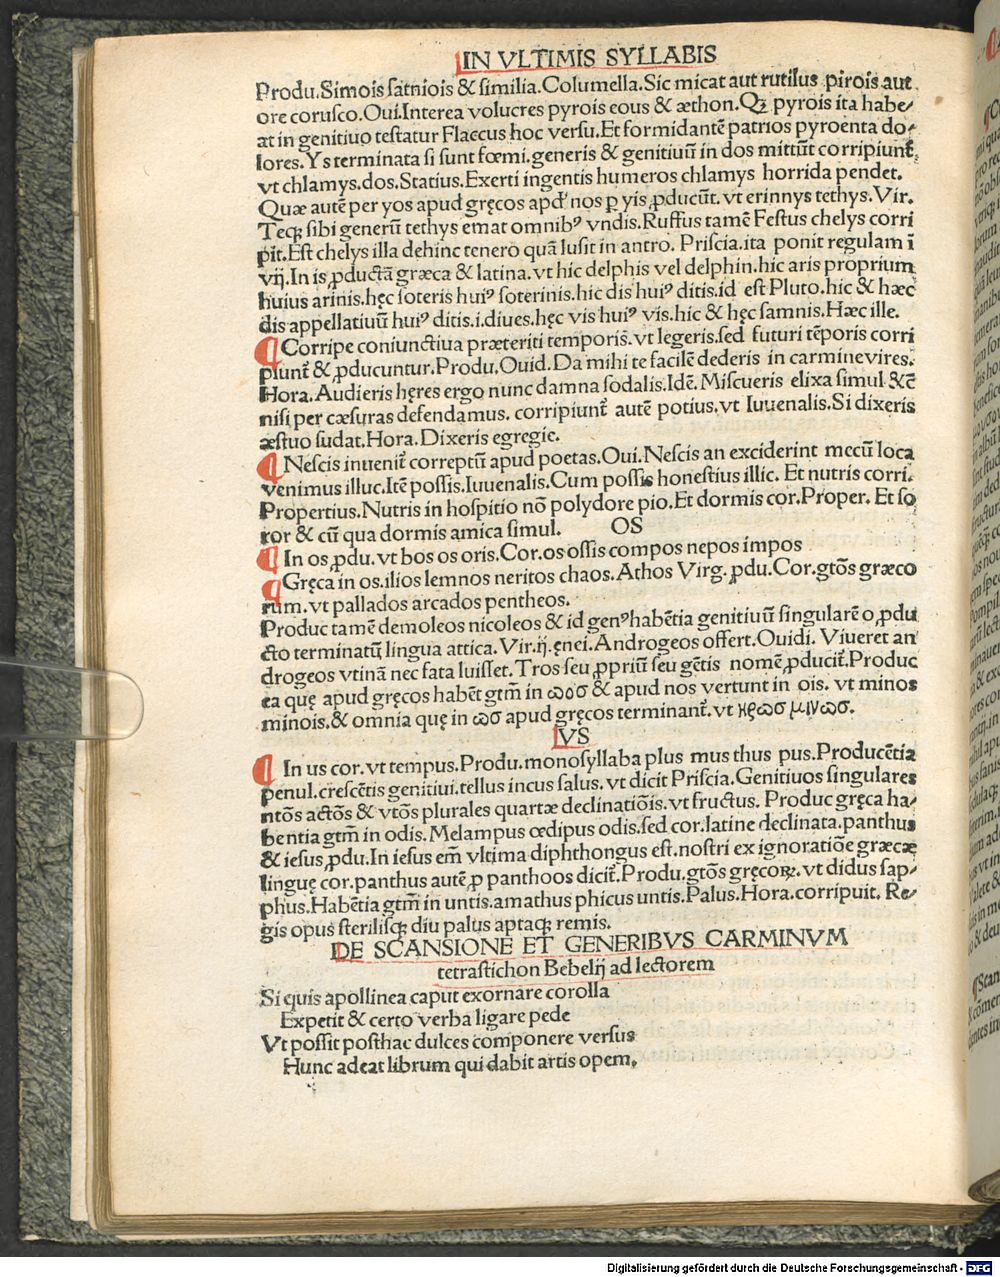 IN VLTIMIS SYLLABIS
Produ.Simois satniois & similia.Columella.Sic micat aut rutilus pirois aut
ore corusco.Oui.Interea volucres pyrois eous & æthon.Qꝫ pyrois ita habe⸗
at in genitiuo testatur Flaccus hoc versu.Et formidantē patrios pyroenta do⸗
lores.Ys terminata si sunt fœmi.generis & genitiuū in dos mittūt corripiunt̄,
vt chlamys.dos.Statius.Exerti ingentis humeros chlamys horrida pendet.
Quæ autē per yos apud gręcos apd' nos ꝑ yis ꝓducūt.vt erinnys tethys.Vir.
Teqꝫ sibi generū tethys emat omnibꝰ vndis.Ruffus tamē Festus chelys corri
pit.Est chelys illa dehinc tenero quā lusit in antro. Priscia.ita ponit regulam ī
vij.In is ꝓductā græca & latina.vt hic delphis vel delphin.hic aris proprium
huius arinis.hęc soteris huiꝰ soterinis.hic dis huiꝰ ditis.id est Pluto.hic & hæc
dis appellatiuū huiꝰ ditis.i.diues.hęc vis huiꝰ vis.hic & hęc samnis.Hæc ille.
¶ Corripe coniunctiua præteriti temporis.vt legeris.sed futuri tēporis corri
piunt̄ & ꝓducuntur.Produ.Ouid.Da mihi te facilē dederis in carmine vires.
Hora.Audieris hęres ergo nunc damna sodalis.Idē.Miscueris elixa simul &c̄
nisi per cæsuras defendamus. corripiunt̄ autē potius.vt Iuuenalis.Si dixeris
æstuo sudat.Hora.Dixeris egregie.
¶ Nescis inuenit̄ correptū apud poetas.Oui.Nescis an exciderint mecū loca
venimus illuc.Itē possis.Iuuenalis.Cum possis honestius illic. Et nutris corri.
Propertius.Nutris in hospitio nō polydore pio.Et dormis cor.Proper. Et so
ror & cū qua dormis amica simul. OS
¶ In os ꝓdu.vt bos os oris.Cor.os ossis compos nepos impos
¶ Gręca in os.ilios lemnos neritos chaos.Athos Virg.ꝓdu.Cor.gtōs græco
rum.vt pallados arcados pentheos.
Produc tamē demoleos nicoleos & id genꝰ habētia genitiuū singularē o ꝓdu
cto terminatū lingua attica.Vir.ij.ęnei.Androgeos offert.Ouidi.Viueret an
drogeos vtinā nec fata luisset.Tros seu ꝓpriū seu gētis nomē ꝓducit̄.Produc
ea quę apud gręcos habēt gtm̄ in ωοσ & apud nos vertunt in ois. vt minos
minois.& omnia quę in ωσ apud gręcos terminant̄.vt ηρωσ μινωσ.
VS
¶ In us cor.vt tempus.Produ.monosyllaba plus mus thus pus.Producētia
penul.crescētis genitiui.tellus incus salus.vt dicit Priscia.Genitiuos singulares
ntōs actōs & vtōs plurales quartæ declinatiōis.vt fructus. Produc gręca ha⸗
bentia gtm̄ in odis.Melampus œdipus odis.sed cor.latine declinata.panthus
& iesus ꝓdu.In iesus em̄ vltima diphthongus est.nostri ex ignoratiōe græcæ
linguę cor.panthus autē ꝑ panthoos dicit̄.Produ.gtōs gręcoꝝ.vt didus sap⸗
phus.Habētia gtm̄ in untis.amathus phicus untis.Palus.Hora.corripuit. Re⸗
gis opus sterilisqꝫ diu palus aptaqꝫ remis.
DE SCANSIONE ET GENERIBVS CARMINVM
tetrastichon Bebelij ad lectorem
Si quis apollinea caput exornare corolla
Expetit & certo verba ligare pede
Vt possit posthac dulces componere versus
Hunc adeat librum qui dabit artis opem.
Digitalisierung gefördert durch die Deutsche Forschungsgemeinschaft - DFG